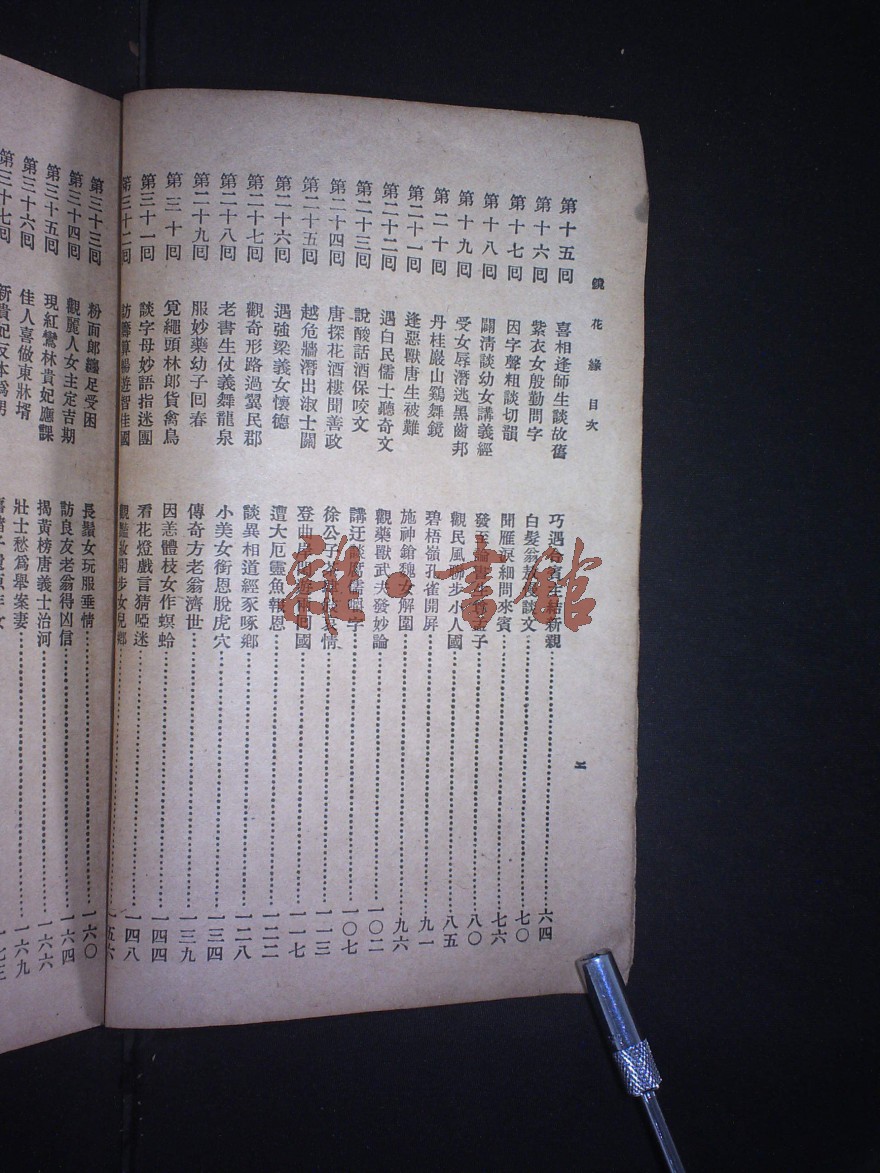 鏡花緣 目次
第十五囘 喜相逢師生談故舊 巧遇合賓主結新親 六四
第十六囘 紫衣女殷勤問字 白髮翁傲慢談文 七〇
第十七囘 因字聲粗談切韻 聞雁淚細問來賓 七六
第十八囘 闢清談幼女講義經 發至論書生尊孟子 八〇
第十九囘 受女辱潛逃黑齒邦 觀民風聯步小人國 八五
第二十囘 丹桂巖山鷄舞鏡 碧梧嶺孔雀開屏 九一
第二一囘 逢惡獸唐生被難 施神鎗魏女解圍 九六
第二二囘 遇白民儒士聽奇文 觀藥獸武夫發妙論 一〇二
第二三囘 說酸話酒保咬文 講迂談腐儒嚼字 一〇七
第二四囘 唐探花酒樓聞善政 徐公子茶肆敍衷情 一一三
第二五囘 越危牆潛出淑士關 登曲岸閒遊兩面國 一一七
第二六囘 遇強梁義女懷德 遭大厄靈魚報恩 一二二
第二七囘 觀奇形路過翼民郡 談異相道經豕喙鄉 一二八
第二八囘 老書生仗義舞龍泉 小美女銜恩脫虎穴 一三四
第二九囘 服妙藥幼子囘春 傳奇方老翁濟世 一三九
第三十囘 覓蠅頭林郎貨禽鳥 因恙體枝女作螟蛉 一四四
第三一囘 談字母妙語指迷團 看花燈戲言猜啞迷 一四八
第三二囘 訪籌算暢遊智佳國 觀豔妝閒步女兒鄉 一五六
第三三囘 粉面郎纏足受困 長鬚女玩股垂情 一六〇
第三四囘 觀麗人女主定吉期 訪良友老翁得凶信 一六四
第三五囘 現紅鸞林貴妃應課 揭黃榜唐義士治河 一六六
第三六囘 佳人喜做東牀壻 壯士愁爲舉案妻 一六九
第三七囘 新貴妃反本爲男 一七三
雜·書館